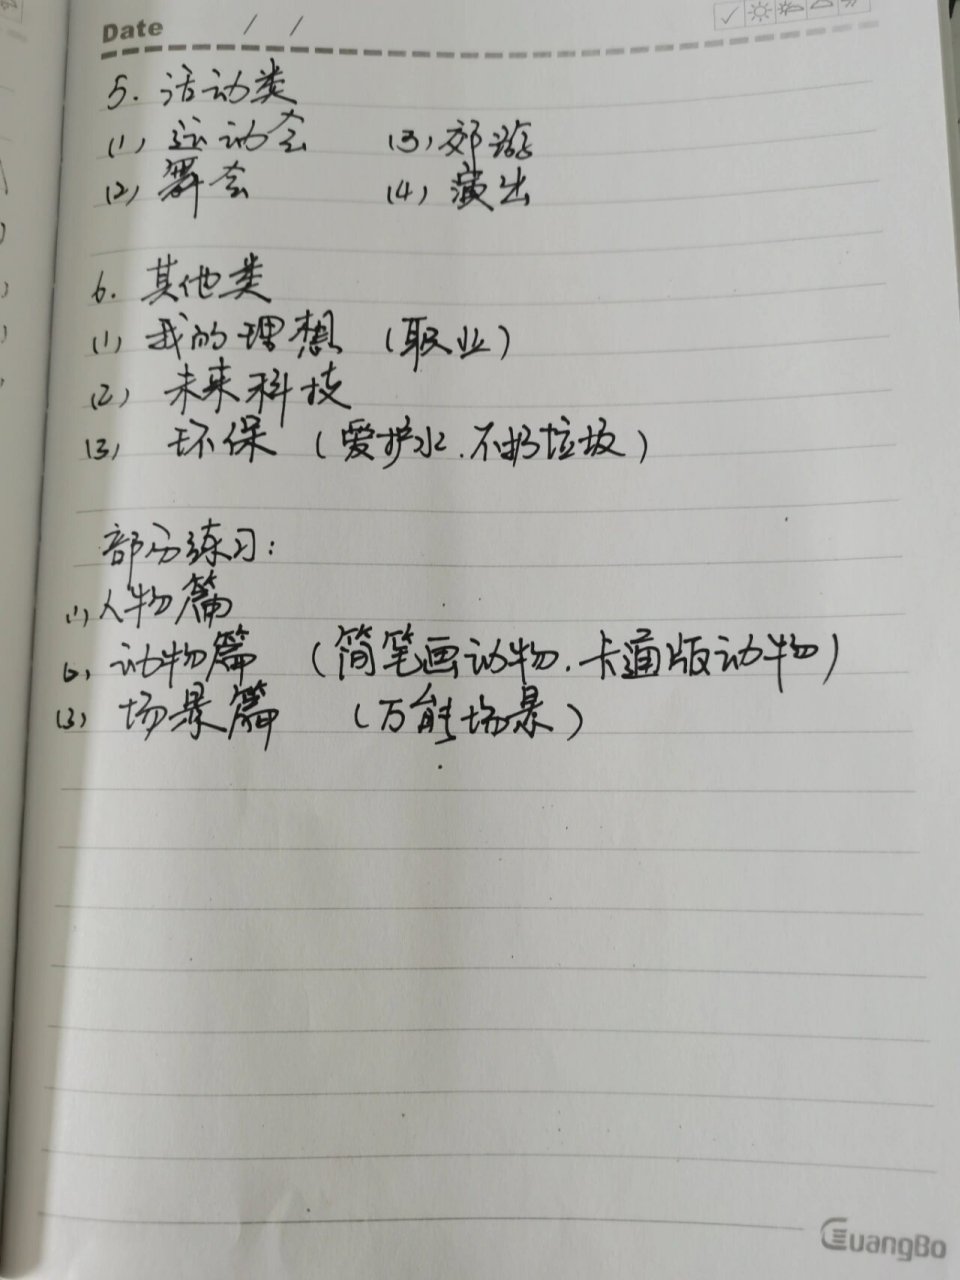 Date / /
5. 活动类
(1) 运动会 (3) 郊游
(2) 舞会 (4) 演出
6. 其他类
(1) 我的理想 (职业)
(2) 未来科技
(3) 环保 (爱护水.不扔垃圾)
部分练习:
(1) 人物篇
(2) 动物篇 (简笔画动物.卡通版动物)
(3) 场景篇 (万能场景)
GuangBo